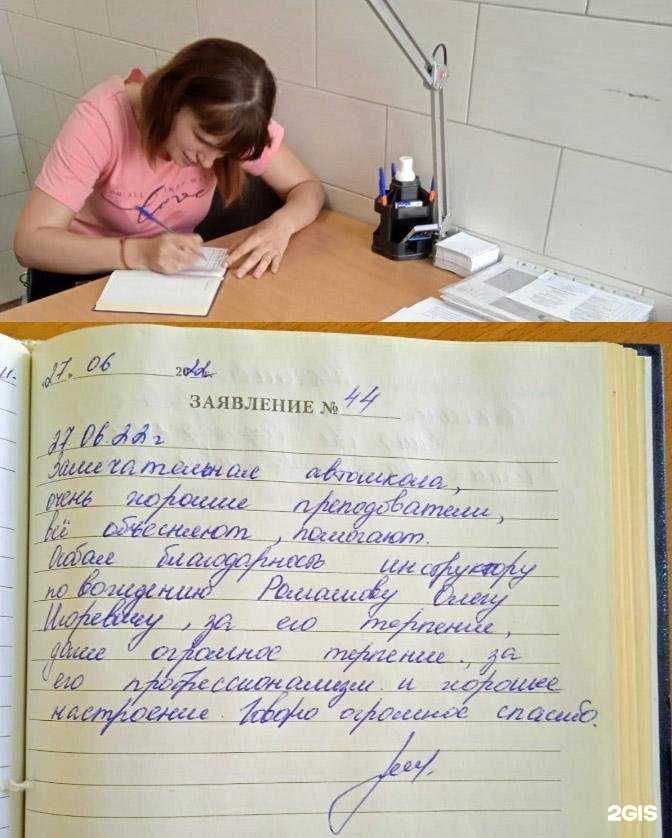 Love
27. 06 2022
ЗАЯВЛЕНИЕ № 44
27.06.22 г
Замечательная автошкола,
очень хорошие преподователи,
всё объесняют, помогают.
Особая благодарность инструктору
по вождению Ромашову Олегу
Игоревичу, за его терпение,
даже огромное терпение, за
его профессионализм и хорошее
настроение. Говорю огромное спасибо.
2GIS